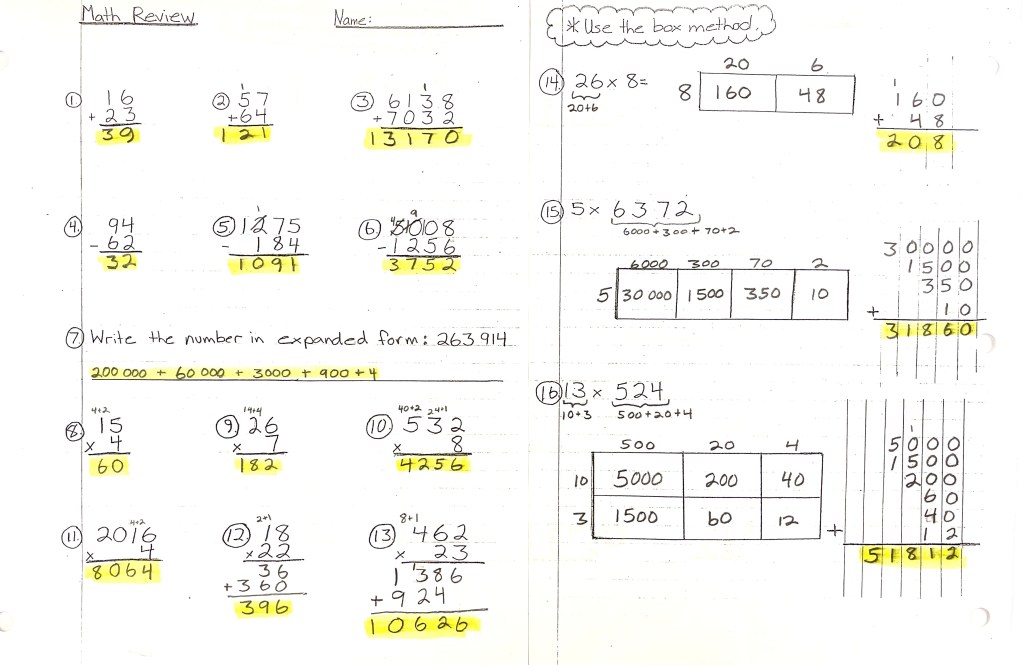 Math Review
Name:
① 16
+ 23
39
② 1
57
+64
121
③ 1
6138
+7032
13170
④ 94
- 62
32
⑤ 1275
- 184
1091
⑥ 4 9
5008
- 1256
3752
⑦ Write the number in expanded form: 263 914
200 000 + 60 000 + 3000 + 900 + 4
⑧ 4+2
15
x 4
60
⑨ 14+4
26
x 7
182
⑩ 40+2 24+1
532
x 8
4256
⑪ 4+2
2016
x 4
8064
⑫ 2+1
18
x22
36
+360
396
⑬ 8+1
462
x 23
1
1386
+ 924
10626
* Use the box method.
⑭ 26 x 8=
20+6
20 6
8 160 48
1
160
+ 48
208
⑮ 5 x 6372
6000+300+70+2
6000 300 70 2
5 30 000 1500 350 10
30000
1500
350
+ 10
31860
⑯ 13 x 524
10+3 500+20+4
500 20 4
10 5000 200 40
3 1500 60 12
1
5000
1500
200
60
40
+ 12
51812